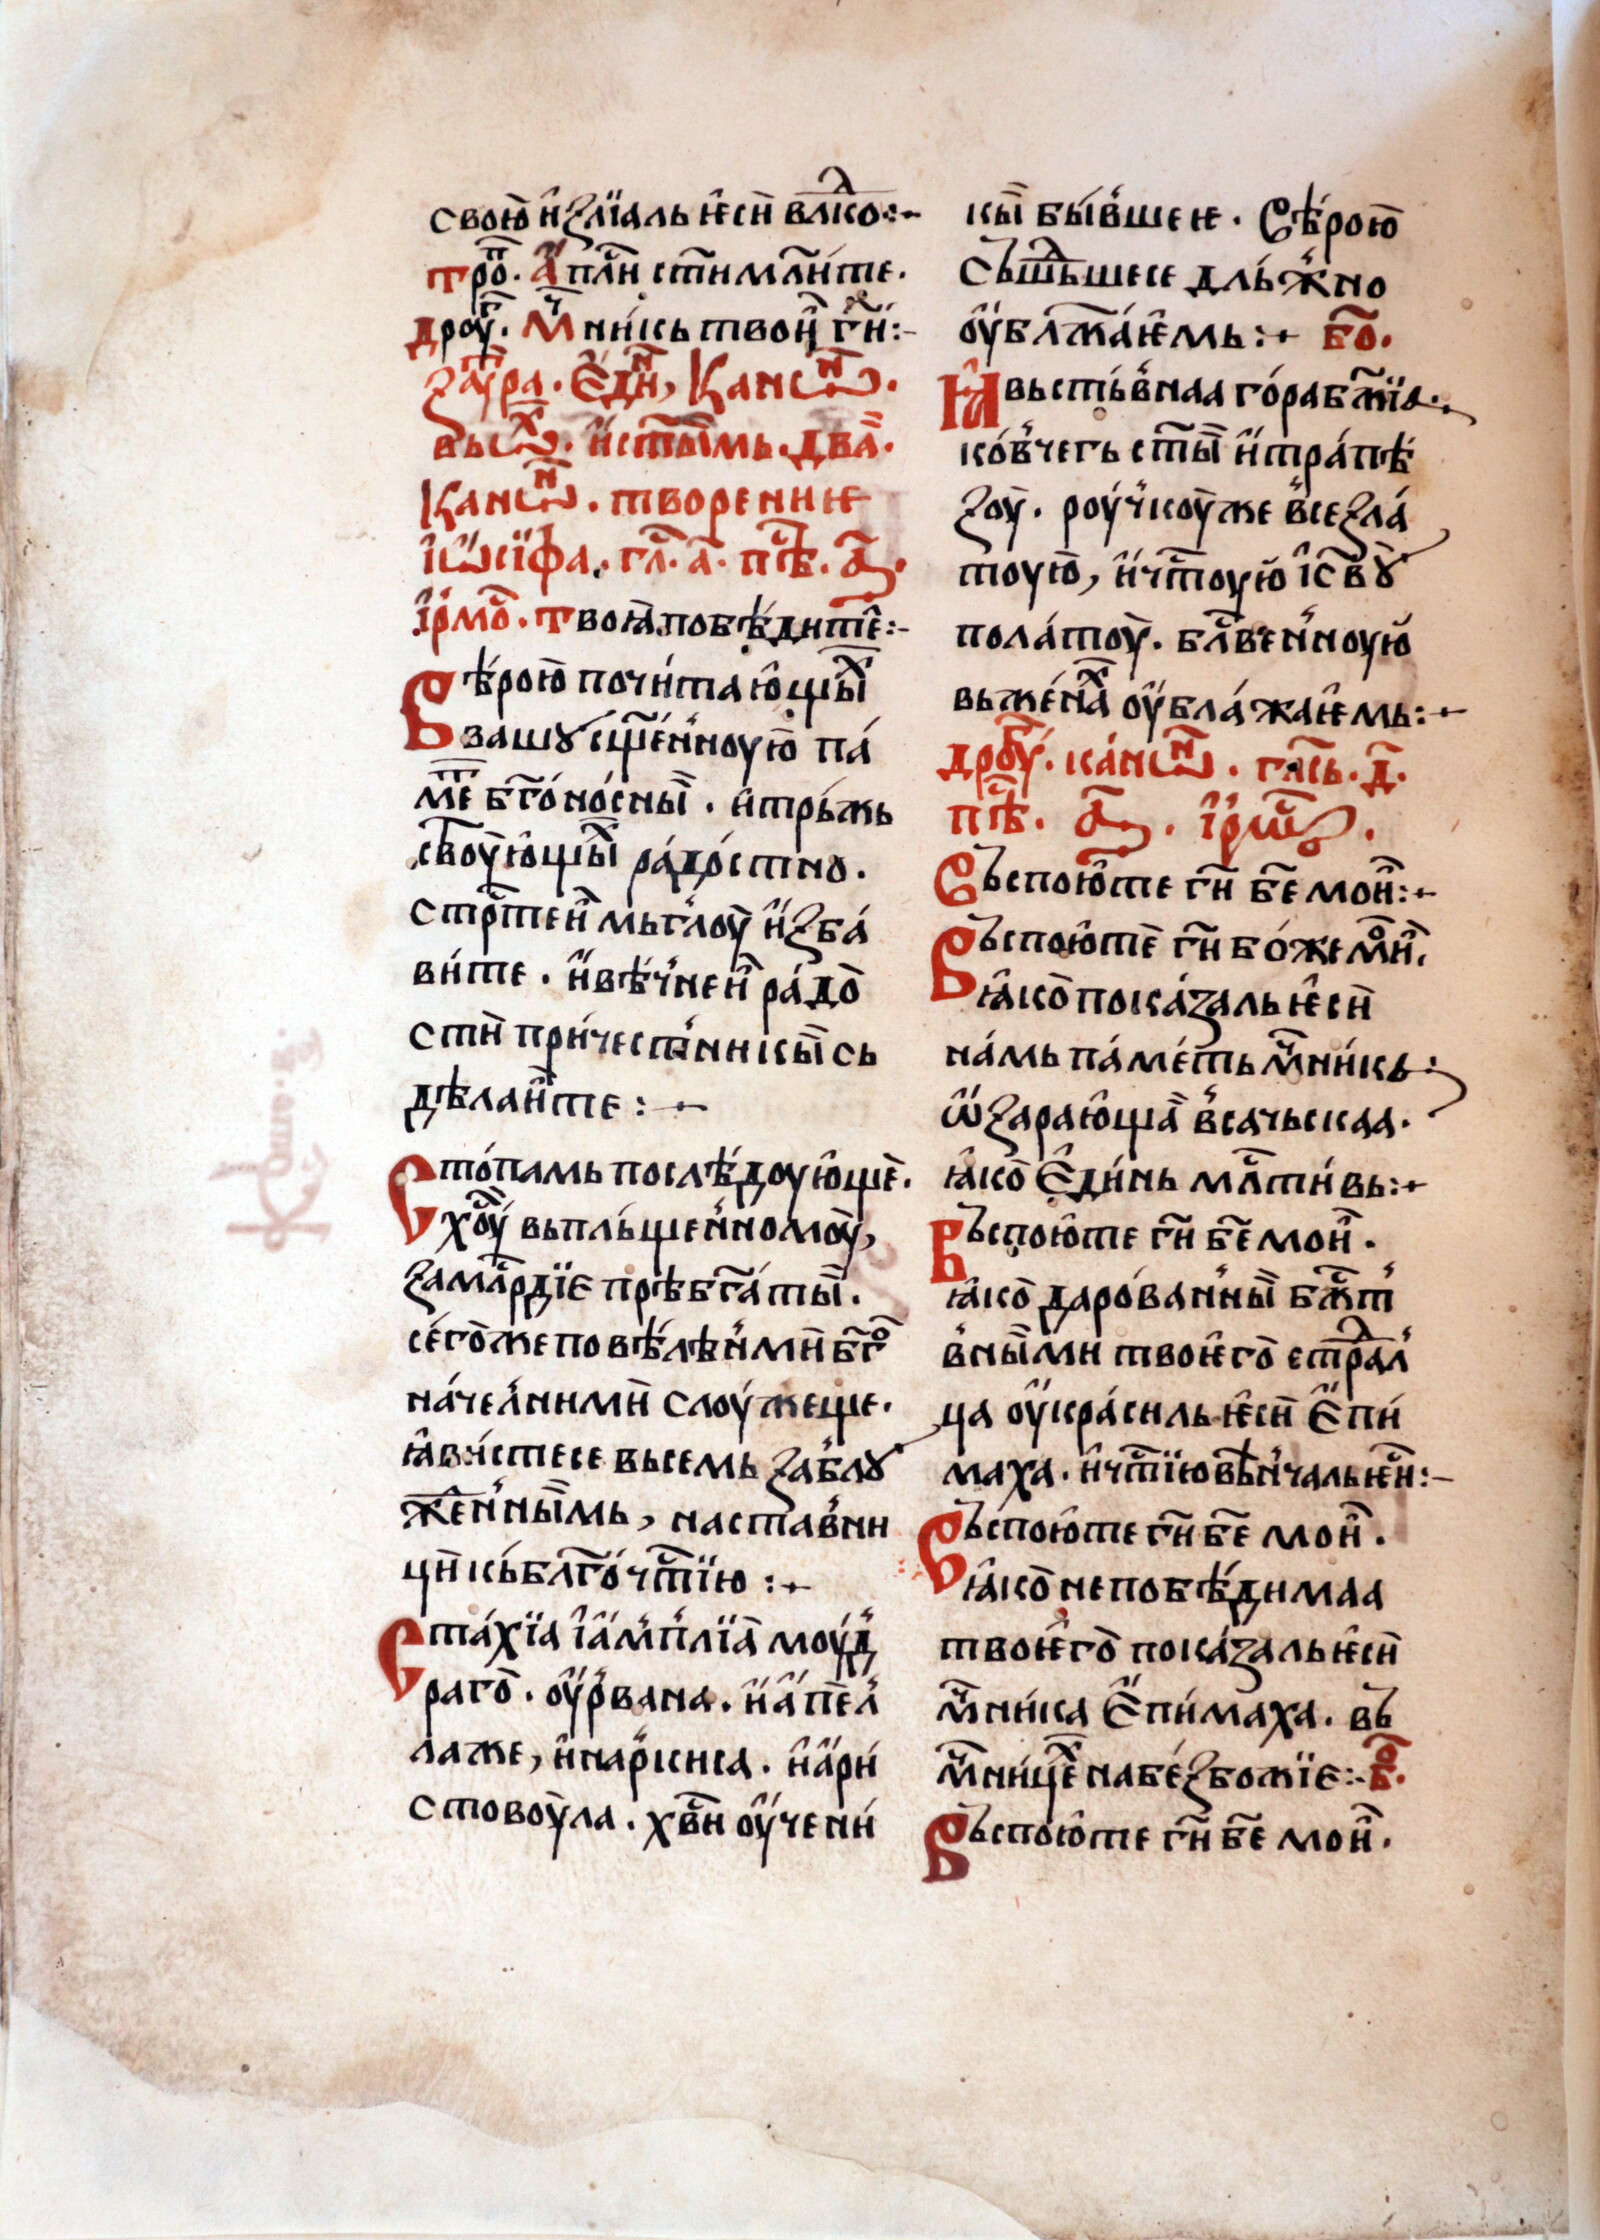 свою̀ и҆злїаль ѥ҆сѝ влⷣко:·
тро҇ⷫ. А҆пⷭ҇лѝ ст҃и млⷭ҇ти́те.
дроу҇ⷢ. Мⷱ҇ни́кь твоѝ гⷭ҇и:-
за́ѹтра. Є҆ди́ⷩ, Канѡⷩ҇.
вьѡⷯ. и҆ст҃ы̏мь. два̏.
Канѡⷩ҇. творениѥ
і҆ѡ҆сїфа. гл҃. а҃. пѣ҇ⷭ. а҃.
і҆рмо҇ⷭ. твоꙗ̀ побѣ́дите҇ⷧ:-
Вѣ́рою̀ почи́таю҆щы̏ⷯ
вашꙋ сщ҃е́н꙽ноую̀ па́
ме҇ⷮ бг҃оно́сны̏. и҆трь́жь
ствоу̀ю҆щы̏ⷯ ра́до́стно.
стрⷭ҇теѝ мьглоу̀ и҆зба́
ви́те. и҆вѣ́ч꙽неѝ ра́до̀
стѝ при́чест꙽никы̏ сь
дѣлаи҆те :-
Сто́памь послѣ́доую҆ще̏.
хⷭ҇оу̀ вьпль́щен꙽номоу̀,
за млⷭ҇рдїє прѣбг҃а́ты̏.
се́го̀же повѣ́лѣн꙽мѝ бг҃о
на́чел꙽нимѝ слоу́жеще.
ꙗ҆ви́стесе вьсемь за́блꙋ
жен꙽ны̏мь, настав꙽ни
цѝ кь́ блг҃о́чⷭ҇тїю :-
Ста́хїа і҆а҆м꙽плїа̀ моу́д꙽
раго̀. оу҆р꙽вана. и҆а҆пел꙽
лаже, и҆нар꙽киса. и҆а҆ри́
стовоу̀ла. хв҃ѝ оу҆чени́
кы̏ бы́в꙽шеѥ. Вѣ́рою̀
сь́шⷣьшесе дль́ж꙽но
оу҆бл҃жа́ѥ҆мь:- бо҃.
Ꙗ҆вьстьв꙽наа го́ра бж҃їа.
ко́в꙽чегь ст҃ы̏ и҆тра́пѣ
зоу̀. роу́ч꙽коу̀же в꙽сезла́
тоую̀, и҆чⷭ҇тоую̀ і҆с҃вꙋ̀
пола́тоу̀. блⷭ҇вен꙽ноую̀
вьже́на̏ⷯ оу҆бла́жаѥ҆мь:-
дроу҇ⷢ. ка́нѡⷩ҇. гла҇ⷭь. д҃.
пѣ҇ⷭ. а҃. і҆рмѡ҇ⷭ.
Вьспою҆те гⷭ҇и бж҃е моѝ:-
Вьспою҆те̏ гⷭ҇и бо́же моѝ.
ꙗ҆ко̀ пока́заль ѥ҆сѝ
на́мь па́ме́ть мⷱ҇ни́кь.
ѡ҆зараю҆ща̏ в꙽сачьскаа.
ꙗ҆ко̀ є҆ди́нь млⷭ҇ти́вь:-
Вьспою҆те гⷭ҇и бж҃е моѝ.
ꙗ҆ко̀ даро́ван꙽ны̏ бжⷭ҇т꙽
в꙽ны̏ми твоѥ҆го̀ стрⷣал꙽
ца оу҆кра́силь ѥ҆сѝ Є҆пи́
маха. и҆чⷭ҇тїю вѣ́н꙽чаль ѥ҆сѝ:-
Вьспою҆те гⷭ҇и бж҃е моѝ.
ꙗ҆ко̀ непобѣ́димаа
твоѥ҆го̀ пока́заль ѥ҆сѝ
мⷱ҇ни́ка Є҆пи́маха. вь
мⷱ҇ни́це̏ⷯ на бе́збожїє:- бо҃.
Вьспою҆те гⷭ҇и бж҃е моѝ.